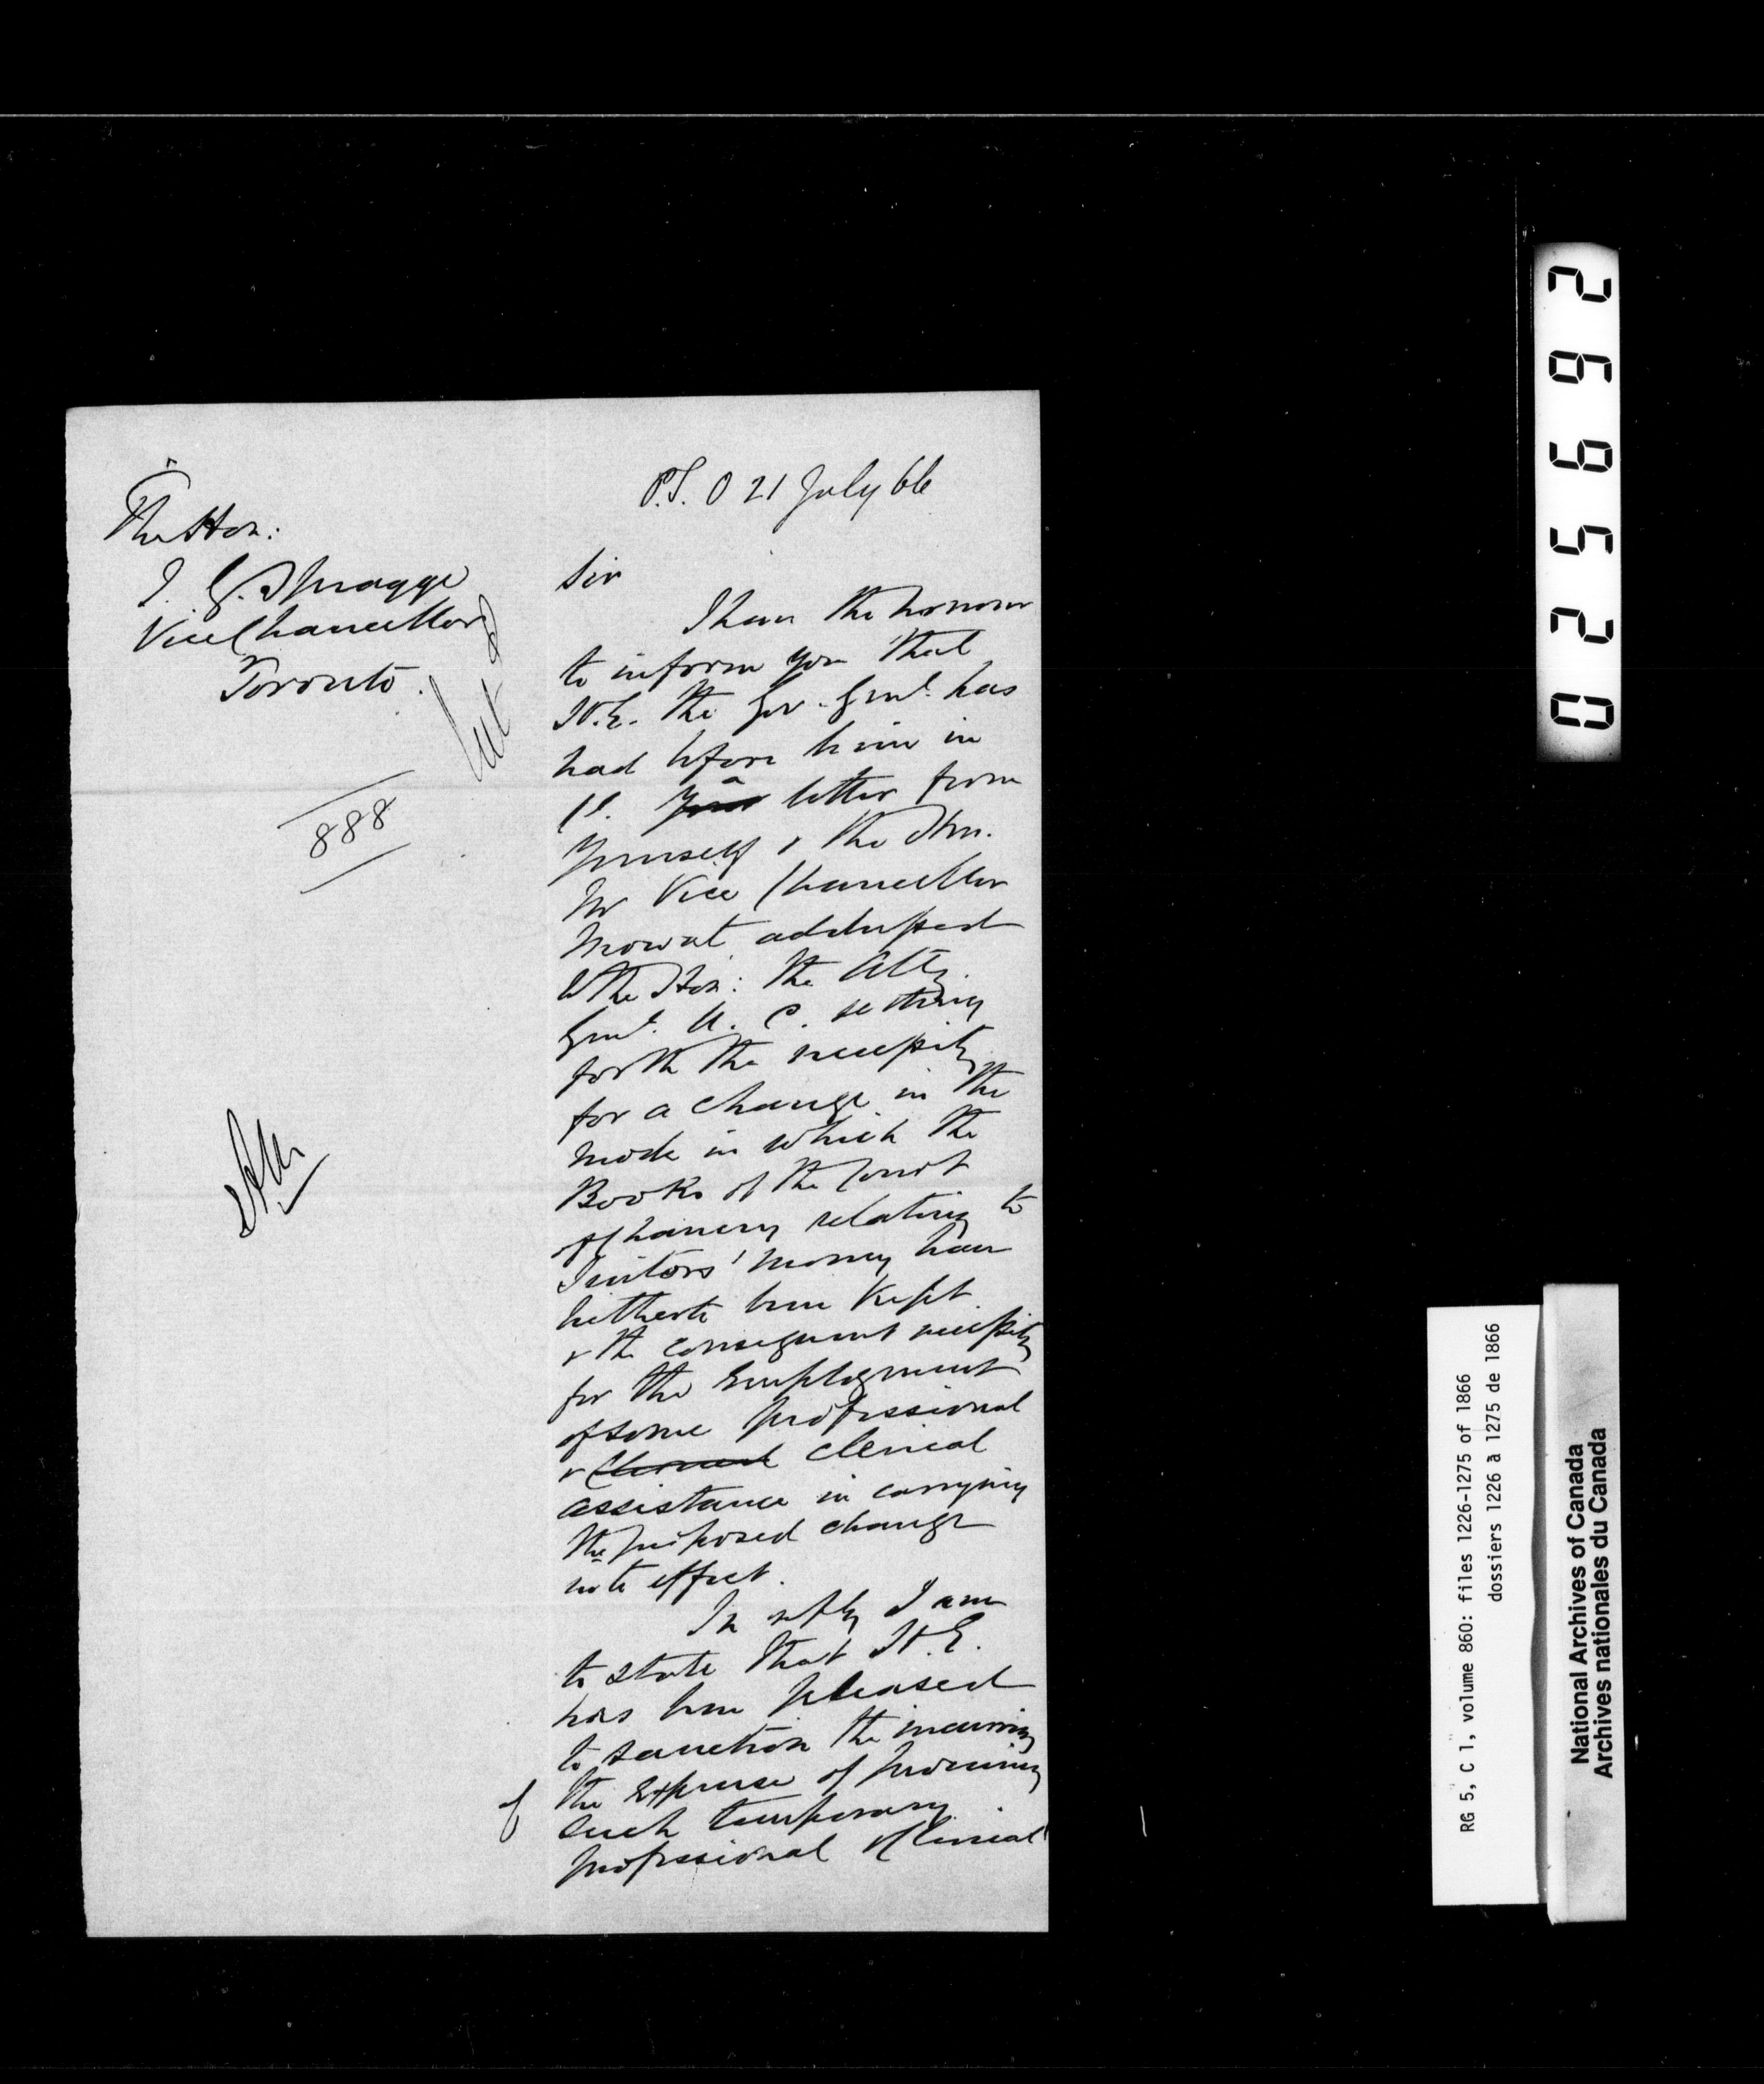 P.S.O 21 July 66
The Hon:
J. G. Spragge
Vice Chancellor
Toronto.
888
Sir
I have the honour
to inform you that
H.E. the Gov. Genl. has
had before him in
Cl. a letter from
yourself & the Hon.
Mr Vice Chancellor
Mowat addressed
to the Hon: the Atty.
Genl. U. C. setting
forth the necessity
for a change in the
mode in which the
Books of the Court
of Chancery relating to
Suitors' money have
hitherto been kept
& the consequent necessity
for the employment
of some professional
& clerical
assistance in carrying
the proposed change
into effect.
In reply I am
to state that H.E.
has been pleased
to sanction the incurring
of the expense of procuring
such temporary
professional & clerical
025692
RG 5, C 1, volume 860: files 1226-1275 of 1866
dossiers 1226 à 1275 de 1866
National Archives of Canada
Archives nationales du Canada